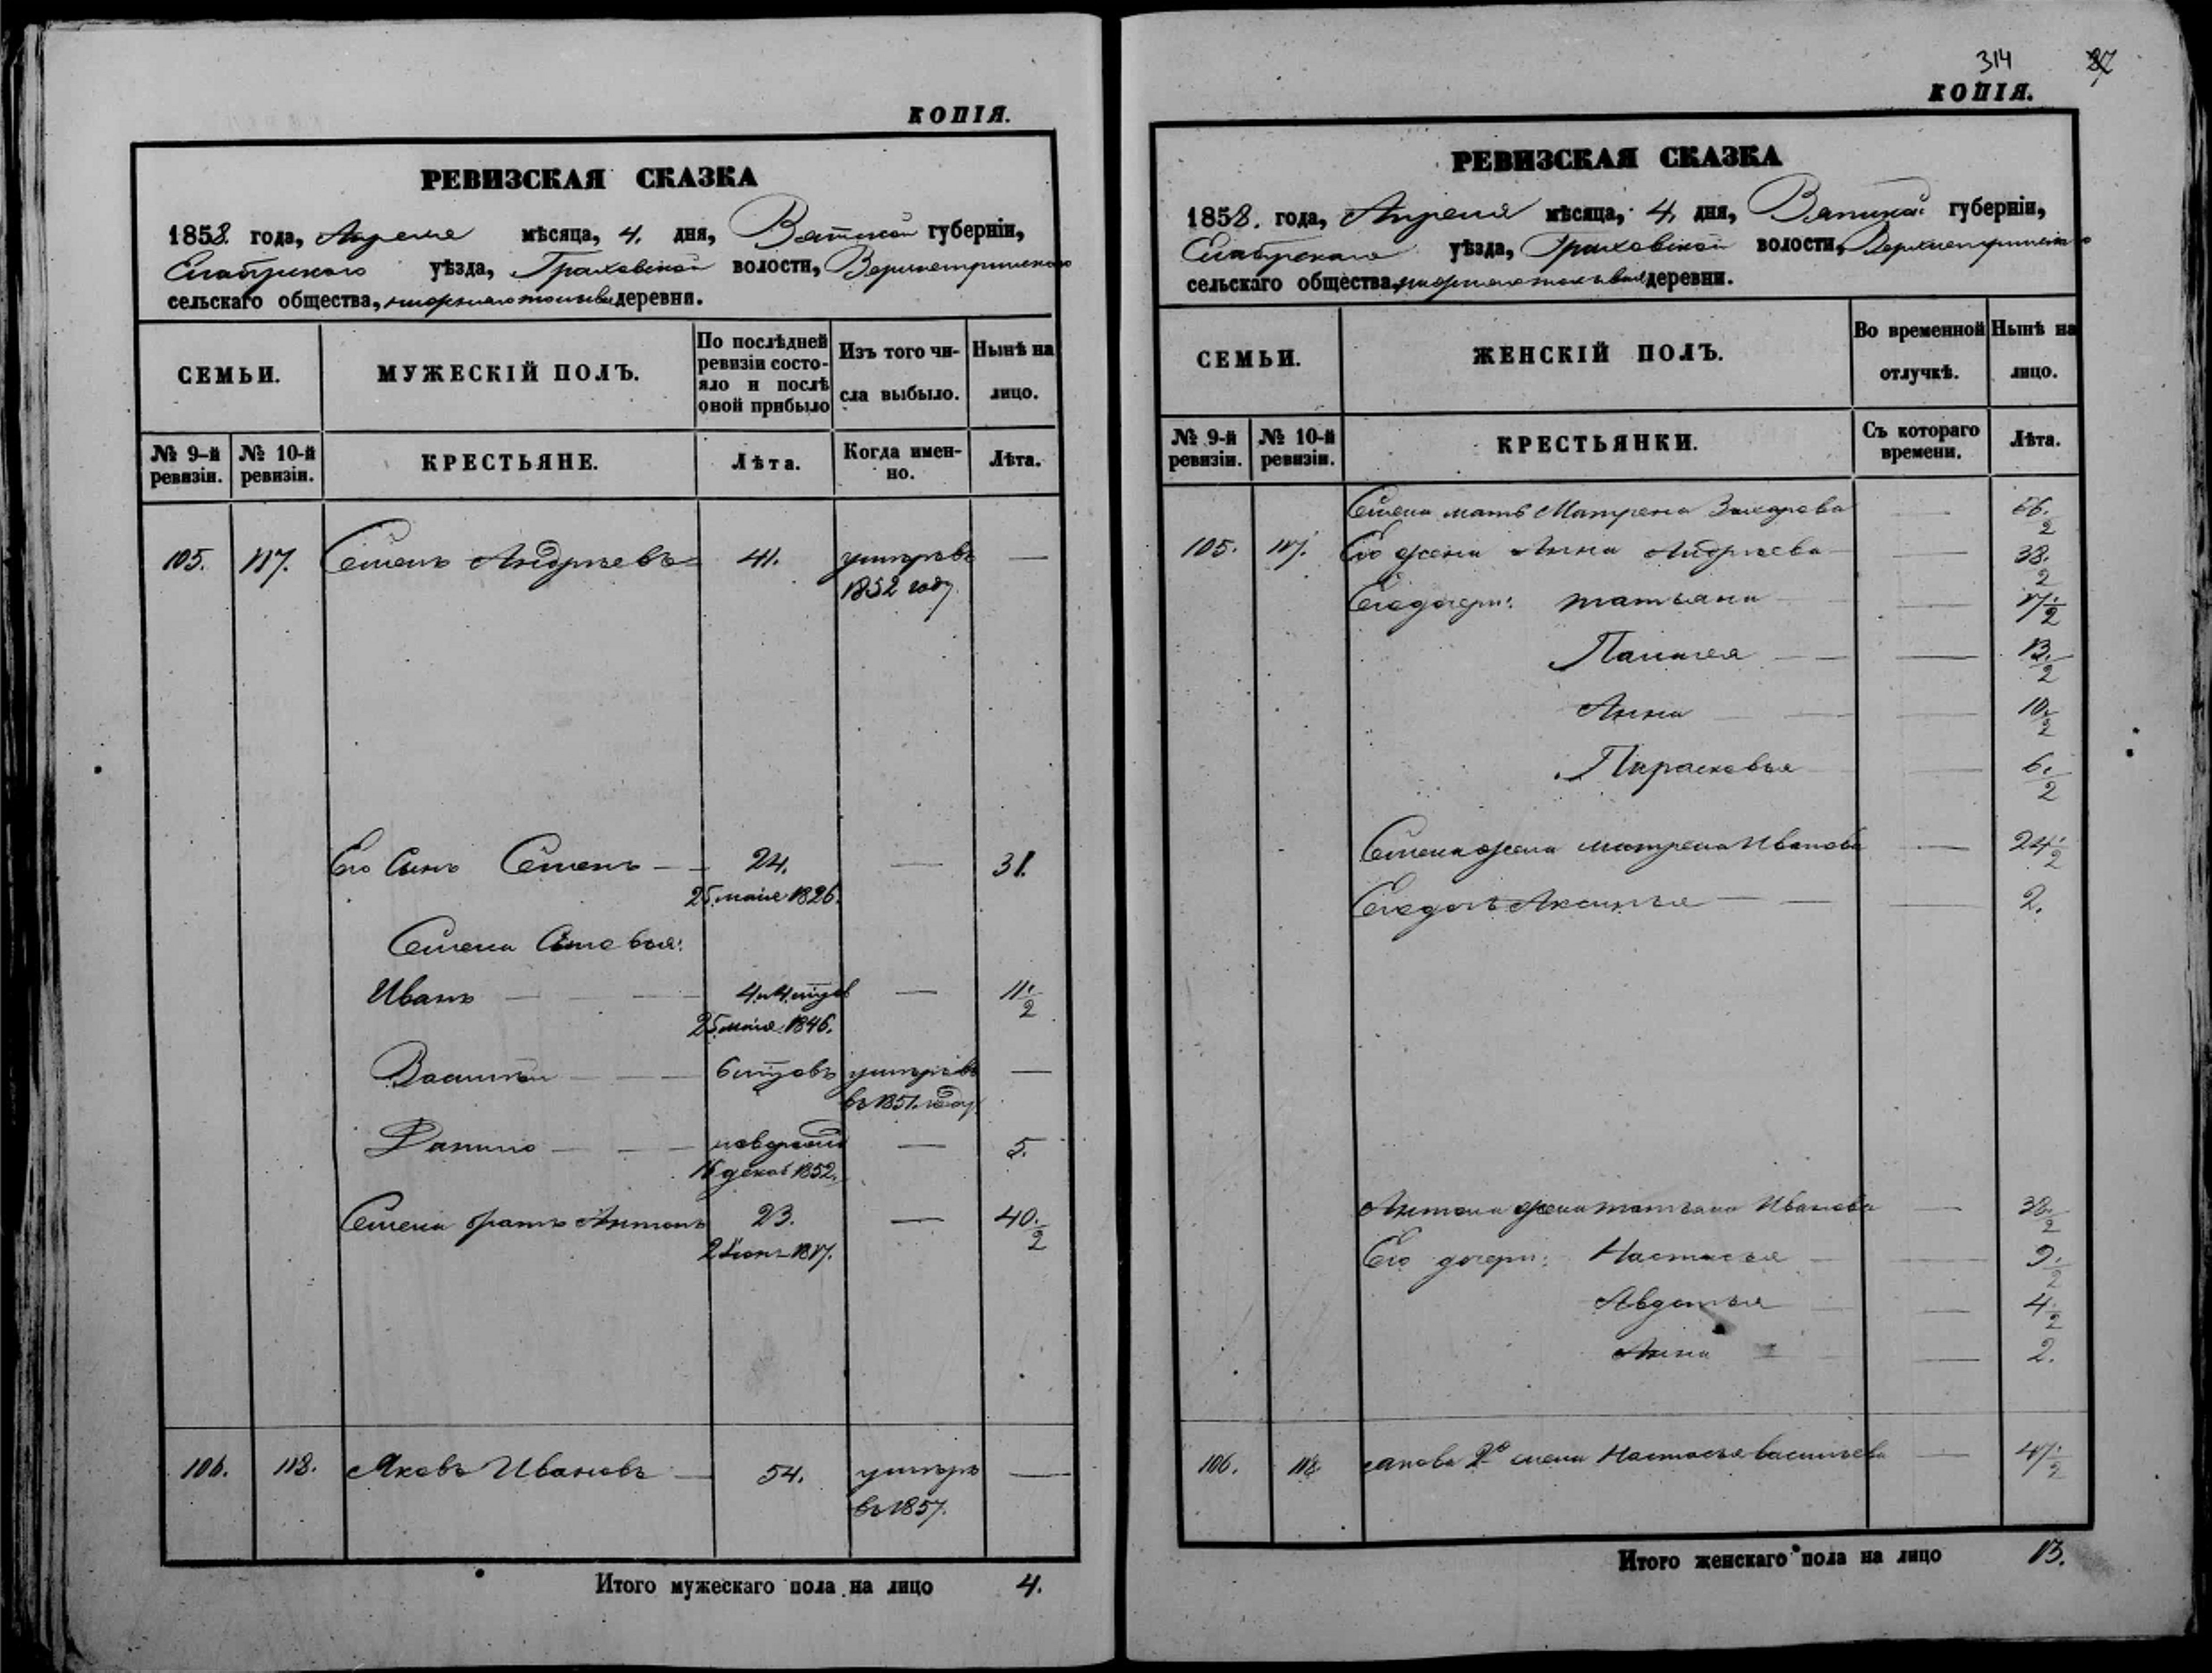 КОПІЯ.
РЕВИЗСКАЯ СКАЗКА
1858. года, Апреля мѣсяца, 4. дня, Вятской губерніи,
Елабужскаго уѣзда, Граховской волости,
сельскаго общества, деревни.
СЕМЬИ. МУЖЕСКІЙ ПОЛЪ. По послѣдней ревизіи состояло и послѣ оной прибыло Изъ того числа выбыло. Нынѣ на лицо.
№ 9-й ревизіи. № 10-й ревизіи. КРЕСТЬЯНЕ. Лѣта. Когда именно. Лѣта.
105. 117. Семенъ Андреевъ 41. умеръ въ —
1852 году
Его Сынъ Семенъ — 24. — 31.
25 маія 1826.
Семена Сыновья:
Иванъ — — — —
25 маія 1846. 11 1/2
Василей — — 6 —
въ 1851 году
Данило — — — — 5.
16 декаб 1852.
Семена братъ Антонъ 23. — 40 1/2
1817.
106. 118. Яковъ Ивановъ — 54. умеръ —
въ 1857.
Итого мужескаго пола на лицо 4.
314
КОПІЯ.
РЕВИЗСКАЯ СКАЗКА
1858. года, Апреля мѣсяца, 4. дня, Вятской губерніи,
Елабужскаго уѣзда, Граховской волости,
сельскаго общества, деревни.
СЕМЬИ. ЖЕНСКІЙ ПОЛЪ. Во временной отлучкѣ. Нынѣ на лицо.
№ 9-й ревизіи. № 10-й ревизіи. КРЕСТЬЯНКИ. Съ котораго времени. Лѣта.
Семена мать Матрена Захарова —
105. 117. Его жена Анна Андреева —
Его дочери: татьяна — — 17 1/2
Палагея — — 13 1/2
Анна — — 10 1/2
Парасковья — 6 1/2
Семена жена матрена Иванова — 24 1/2
Его дочь Аксинья — — 2.
Антона жена татьяна Иванова —
Его дочери: Настасья —
Авдотья — 4 1/2
Анна — 2.
106. 118. Настасья васильева — 47 1/2
Итого женскаго пола на лицо 13.